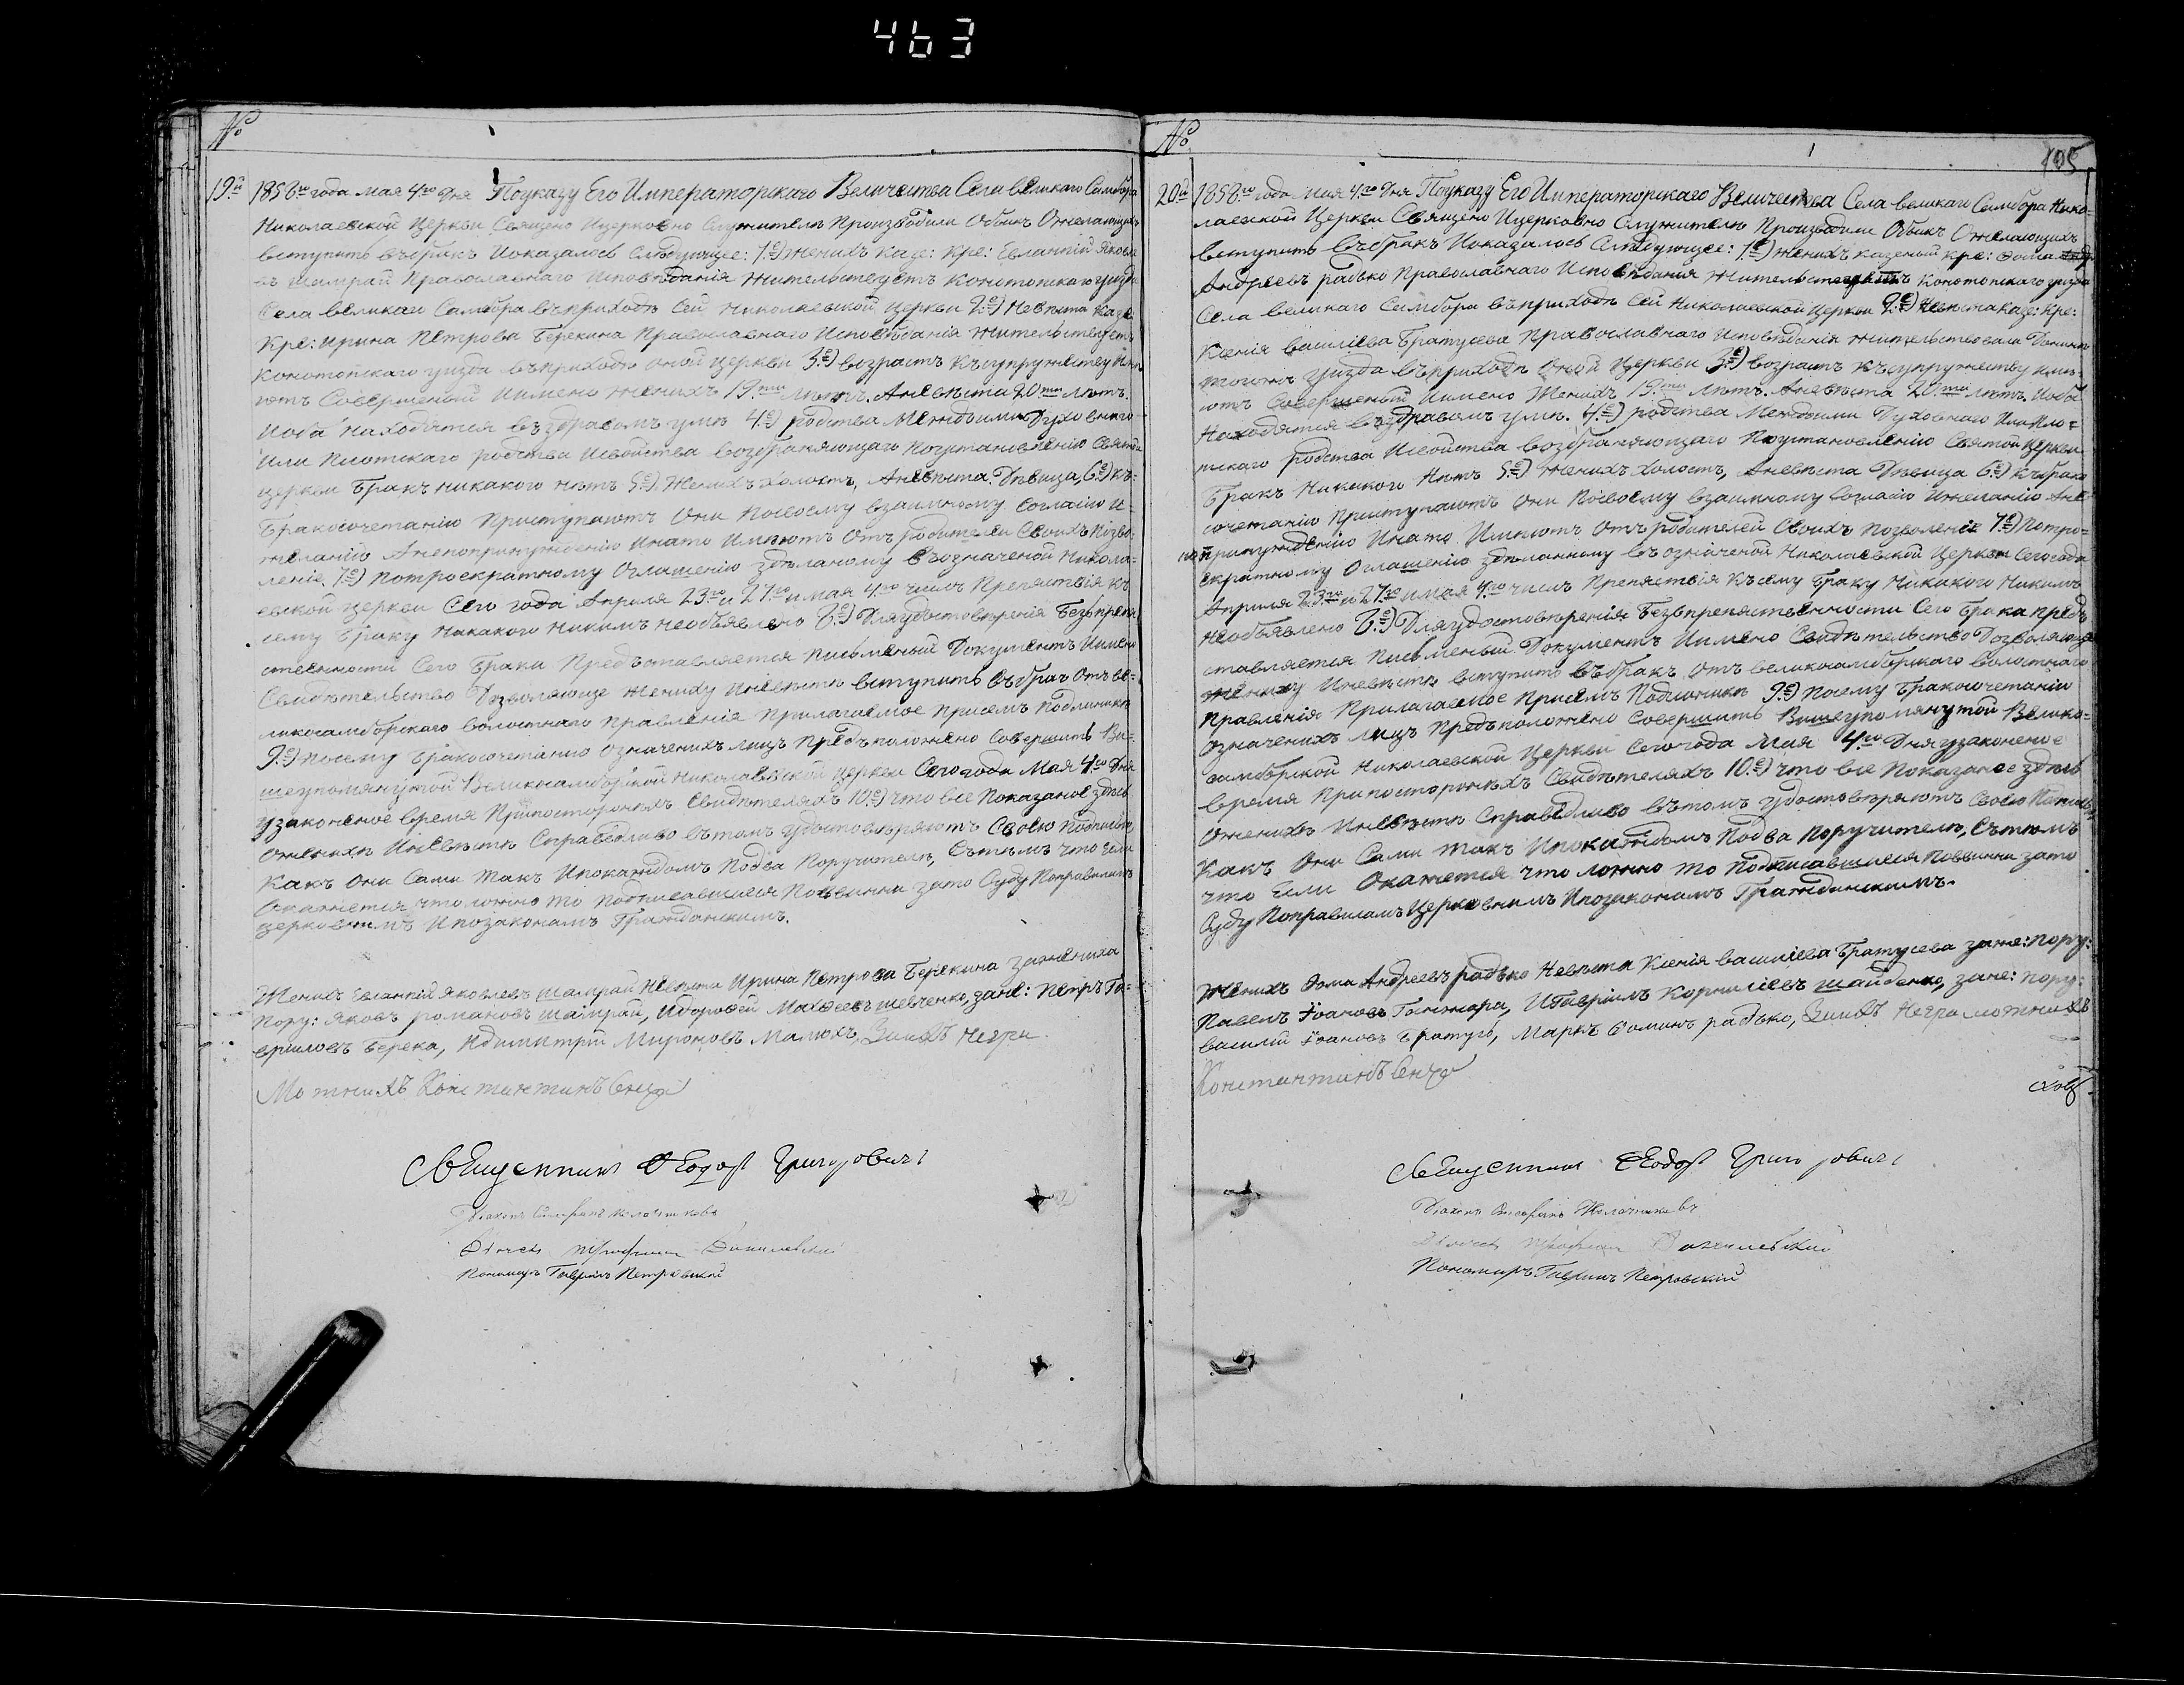 463
№
19й 1858го года мая 4го дня Поуказу Его Императорскаго Величества Села великаго Самбора
Николаевской Церкви Священо Ицерковно Служители Произьводили Обыкъ Ожелающихъ
вступить вьбракъ Ипоказалось Слѣдующее: 1е) женихъ Казе: Кре: Евлампій Яковле
въ Шамрай Православнаго Исповѣданія жительствуетъ Конотопскаго уизда
Села великаго Самбора въприходѣ Сей Николаевской Церкви 2е) Невѣста Казе:
Кре: Ирина Петрова Берекина Православнаго Исповѣданія жительствуетъ
Конотопскаго уизда въприходѣ оной церкви 3е) возрастъ Ксупружеству Имѣ
ютъ Совершеный Иимено женихъ 19ти лѣтъ. Аневѣста 20ти лѣтъ.
Иоба находятся въздравомъ умѣ 4е) родства Междоими Духовнаго
Или Плотскаго родства Исвойства возбраняющаго Поустановленію Святой
церкви Бракъ никакого нѣтъ 5е) Женихъ холостъ, Аневѣста Дѣвица, 6е) Къ:
Бракосочетанію Приступаютъ Они Посвоему взаимному Согласію И=
желанію Анепопринужденію Инато Имѣютъ Отъ родителей Своихъ Позво:
леніе 7е) Потроекратному Оглашенію здѣланому Вьозначеной Никола=
евской церкви Сего года Апрѣля 23го и 27го имая 4го чисѣ Препятствія Къ
сему браку Никакого Никимъ Необъявлено 8е) Дляудостовѣренія Безьпрепя
ственности Сего Брака Предъставляется Письменый Документъ Иимено
Свидѣтельство Дозволяюще жениху Иневѣстѣ вступить въбракъ Отъ ве=
ликосамборскаго волостнаго Правленія Прилагаемое Присемъ Подлиникѣ
9е) Посему бракосочетанію Означенихъ лицъ Предъположено Совершить Ви=
шеупомянутой Великосамборской Николаевской Церкви Сегогода Мая 4го дня
узаконеное время Припостороныхъ Свидѣтеляхъ 10е) что все Показаное здѣсь
Оженихѣ Иневѣстѣ Справедливо вътомъ удостовѣряютъ Своею Подписью
Какъ Они Сами Такъ Ипокаждомъ Подва Поручителя, Сътѣмъ что Если
Окажется что ложно то Подписавшиеся Повинни зато Суду Поправиламъ
церковнимъ Ипозаконамъ Гражданскимъ.
Женихъ Евлампій Яковлевъ Шамрай Невѣста Ирина Петрова Берекина зажениха
Пору: Яковъ романовъ Шамрай, Идорофей Матфеевъ Шевченко, зане: Петръ Га=
вриловъ Берека, Идимитрій Мироновъ Малюхъ, Заихъ Негра
Мотнихъ Константинъ
Священникъ Феодоръ Григоровичъ
Діаконъ
Дьячекъ Данилевскій
Пономаръ Гавріилъ Петровскій
№
105
20й 1858го года мая 4го дня Поуказу Его Императорскаго Величества Села великаго Самбора Нико=
лаевской Церкви Священо Ицерковно Служители Произьводили Обыкъ Ожелающихъ
вступить въбракъ Ипоказалось Слѣдующее: 1е) женихъ казеный Кре: Фома
Андреевъ радько Православнаго Исповѣдания Жительствуетъ Конотопскаго уизда
Села великаго Самбора въприходѣ Сей Николаевской Церкви 2е) Невѣста Казе: Кре:
Ксенія василіева Братусева Православнаго Исповѣданія жительствовала Донинѣ
тогожъ уизда въприходѣ Оной Церкви 3е) возрастъ Ксупружеству имѣ=
ютъ Совершеный Иимено Женихъ 19ти Лѣтъ. Аневѣста 20ти лѣтъ. Иоба
Находятся въздравомъ умѣ. 4е) родства Междоими Духовнаго Или Пло=
тскаго родства Исвойства возбраняющаго Поустановленію Святой Церкви
Бракъ Никакого Нѣтъ 5е) Женихъ холостъ, Аневѣста Дѣвица 6е) Къбрако
сочетанію Приступаютъ Они Посвоему взаимному Согласію Ижеланію Ане
попринужденію Инато Имѣютъ Отъ родителей Своихъ Позволеніе 7е) Потро=
екратному Оглашенію здѣланному въозначеной Николаевской Церкви Сегогода
Апрѣля 23го и 27го имая 4го чисѣ Препятствія Късему Браку Никакого Никимъ
Необъявлено 8е) Дляудостовѣренія Безьпрепятственности Сего Брака Предъ
ставляется Письменый Документъ Иимено Свидѣтельство Дозволяюще
жениху Иневѣстѣ вступить въбракъ Отъ великосамборскаго волостнаго
Правленія Прилагаемое Присемъ Подлиникѣ 9е) Посему Бракосочетанію
Означенихъ Лицъ Предъположено Совершить Вишеупомянутой Велико=
самборской Николаевской Церкви Сегогода Мая 4го дня узаконеное
время Припостороныхъ Свидѣтеляхъ 10е) что все Показаное здѣсь
Оженихѣ Иневѣстѣ Справедливо вътомъ удостовѣряютъ Своею Подписью
Какъ Они Сами Такъ Ипокаждомъ Подва Поручителя, Сътѣмъ
что Если Окажется что ложно то Подписавшиеся Повинни зато
Суду Поправиламъ Церковнимъ Ипозаконамъ Гражданскимъ.
Женихъ Фома Андреевъ радько Невѣста Ксенія василіева Братусева заже: Пору:
Павелъ Іоановъ Ганжара, Игавріилъ Корниліевъ Шайденко, зане: Пору:
василій Іоановъ Братусь, Маркъ Фоминъ радько, Заихъ Неграмотнихъ
Константинъ
Священникъ Феодоръ Григоровичъ
Діаконъ
Дьячекъ Данилевскій
Пономаръ Гавріилъ Петровскій